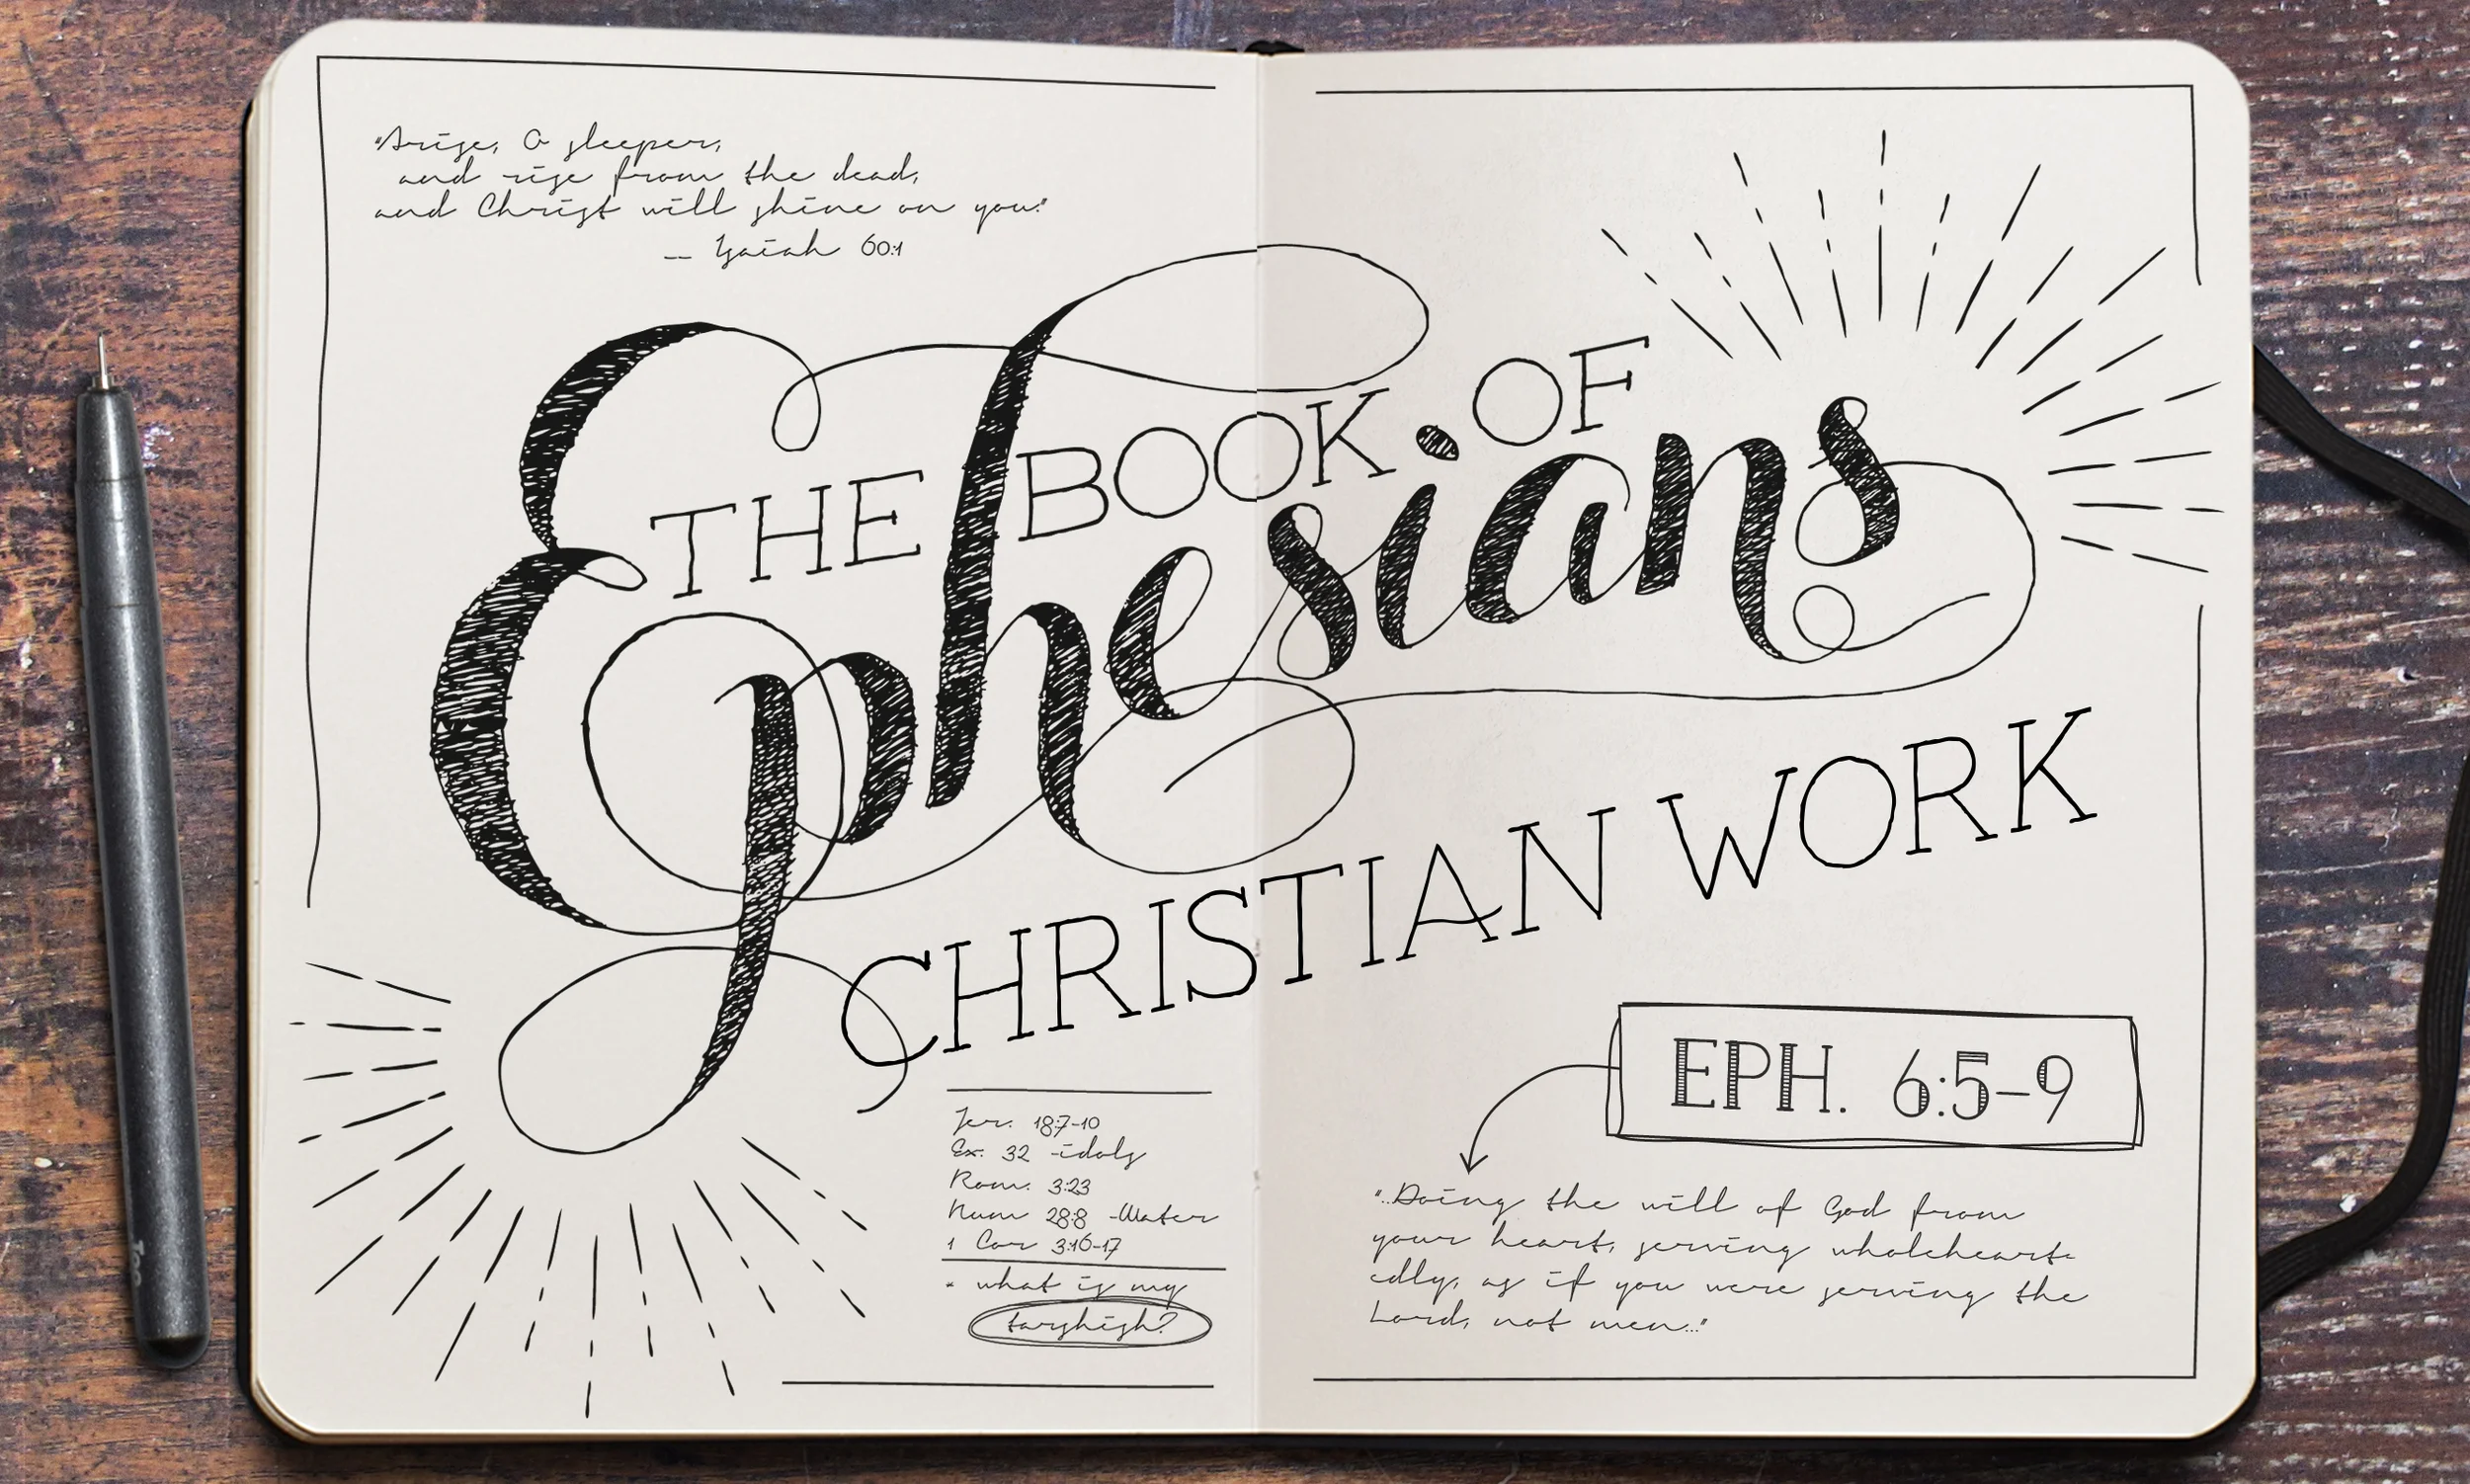 "Arise, O sleeper,
and rise from the dead,
and Christ will shine on you."
-- Isaiah 60:1
THE BOOK OF
Ephesians
CHRISTIAN WORK
EPH. 6:5-9
Jer. 18:7-10
Ex. 32 -idols
Rom. 3:23
Num 28:8 -Water
1 Cor 3:16-17
- what is my
tarshish?
"...Doing the will of God from
your heart, serving wholehearte
edly, as if you were serving the
Lord, not men..."
Too